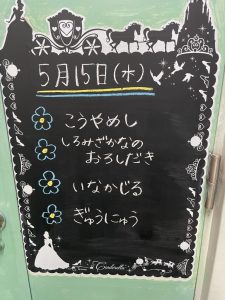 5月15日(水)
こうやめし
しろみざかなの
おろしだき
いなかじる
ぎゅうにゅう
Cinderella